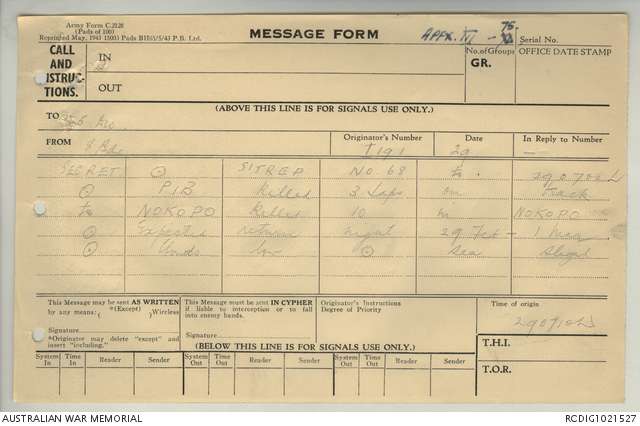 Army Form C.2128
(Pads of 100)
Reprinted May, 1943 15003 Pads B1156/5/43 P.B. Ltd.
MESSAGE FORM
APPX. III 75
Serial No.
CALL AND INSTRUCTIONS.
IN
OUT
No. of Groups
GR.
OFFICE DATE STAMP
(ABOVE THIS LINE IS FOR SIGNALS USE ONLY.)
TO
FROM 8 Bde
Originator's Number
I191
Date
29
In Reply to Number
—
SECRET ⊙ SITREP No. 68 to 290702L
⊙ PIB killed 3 Japs on track
to NOKOPO killed 10 in NOKOPO
⊙ Expected return night 29 Feb - 1 Mar
⊙ Winds low ⊙ Sea slight
This Message may be sent AS WRITTEN
by any means: ( *(Except) )Wireless
Signature
*Originator may delete "except" and
insert "including."
This Message must be sent IN CYPHER
if liable to interception or to fall
into enemy hands.
Signature
Originator's Instructions
Degree of Priority
Time of origin
290710L
(BELOW THIS LINE IS FOR SIGNALS USE ONLY.)
T.H.I.
T.O.R.
System In Time In Reader Sender System Out Time Out Reader Sender System Out Time Out Reader Sender
AUSTRALIAN WAR MEMORIAL
RCDIG1021527